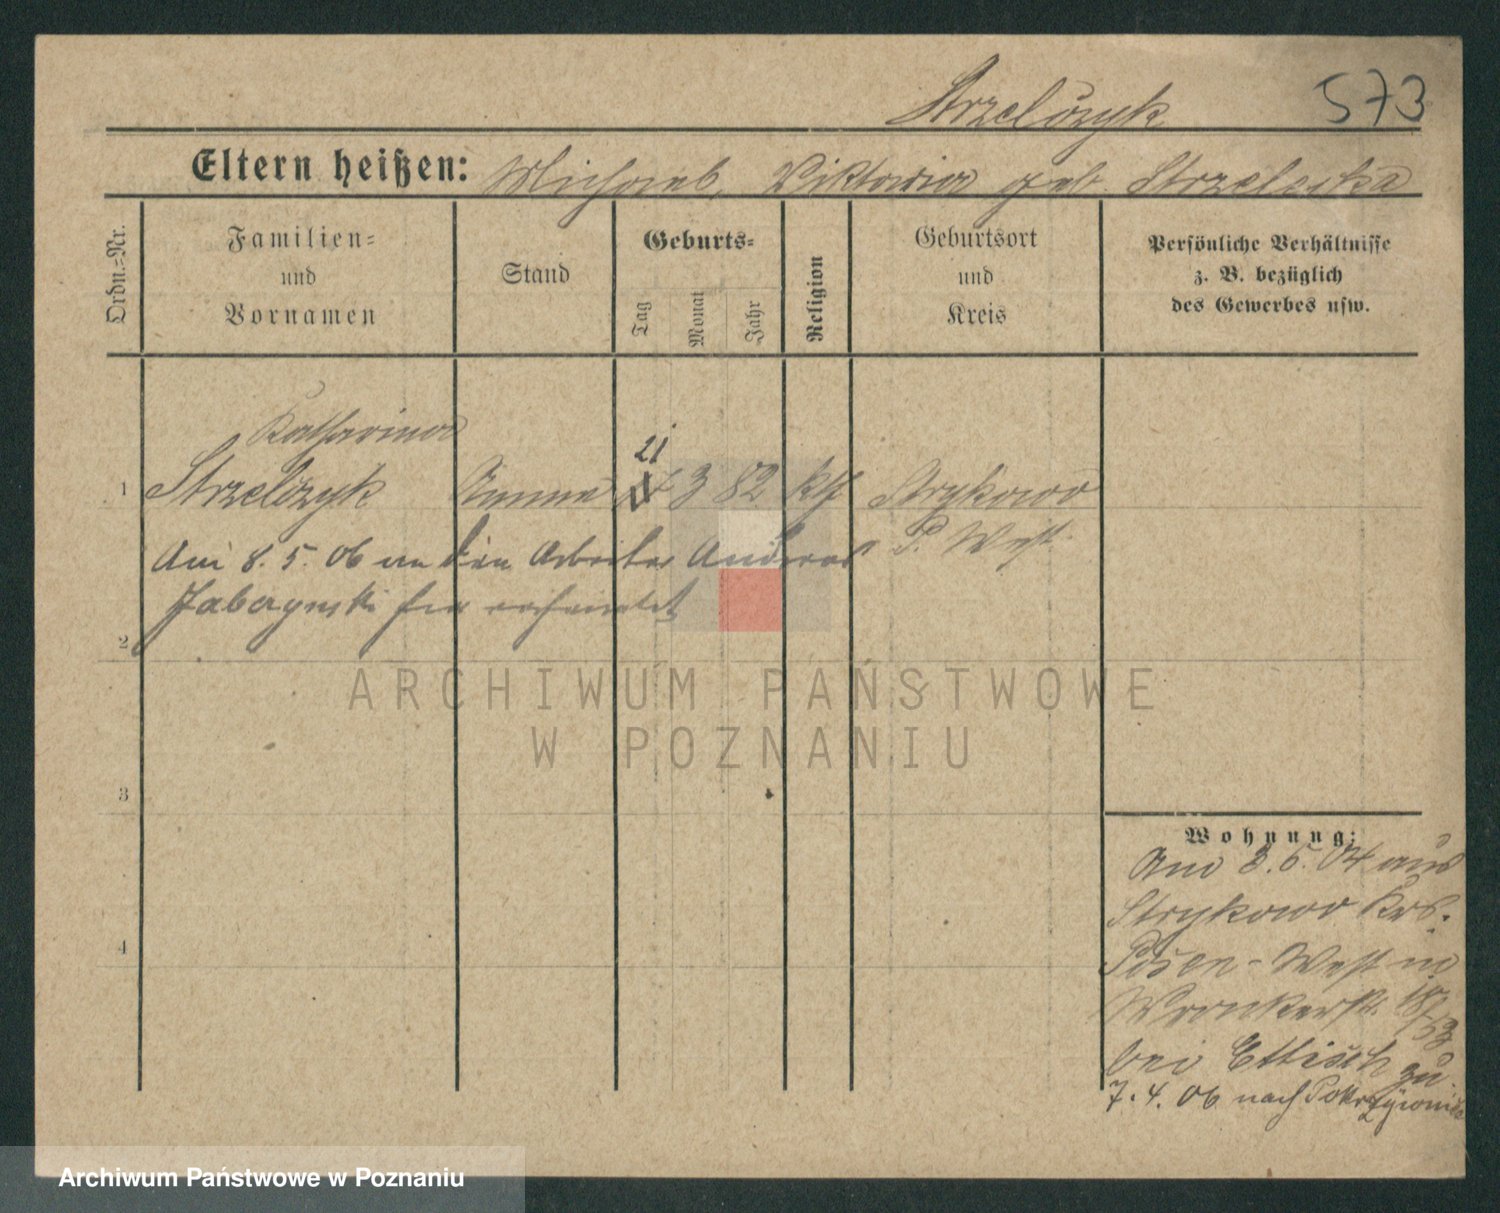 573
Strzelczyk
Eltern heißen: Michael, Viktoria geb. Strzelecka
Ordn.=Nr.
Familien=
und
Vornamen
Stand
Geburts=
Tag
Monat
Jahr
Religion
Geburtsort
und
Kreis
Persönliche Verhältnisse
z. B. bezüglich
des Gewerbes usw.
Katharina
21
1 Strzelczyk Amme 3 82 kth Strykowo
P. West
Am 8. 5. 06 an den Arbeiter Andreas
hier verheiratet
2
ARCHIWUM PAŃSTWOWE
W POZNANIU
3
4
Wohnung:
Am 3. 6. 04 aus
Strykowo Krs.
Posen-West in
Wronkerstr. 18/53
bei zu.
7. 4. 06 nach
Archiwum Państwowe w Poznaniu